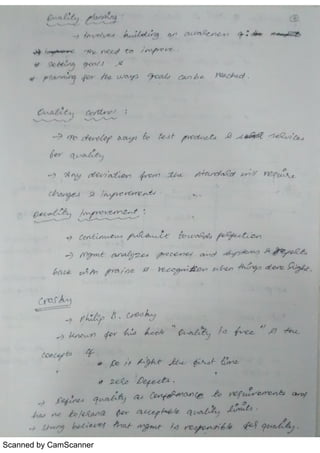 Quality planning:
→ Involves building an awareness of
the need to improve.
* Setting goals &
* planning for the ways goals can be reached.
Quality control:
→ To develop ways to test products & services
for quality
→ Any deviation from the standard will require
changes & improvements.
Quality Improvement:
→ continuous pursuit towards perfection
→ Mgmt analyzes processes and systems & reports
back with praise & recognition when things done right.
Crosby
→ Philip B. Crosby
→ Known for his book "Quality is free" & the
concepts of
* Do it Right the first time
* zero Defects.
→ Defines quality as conformance to requirements and
has no tolerance for acceptable quality limits.
→ strong believes that mgmt is responsible for quality.
Scanned by CamScanner